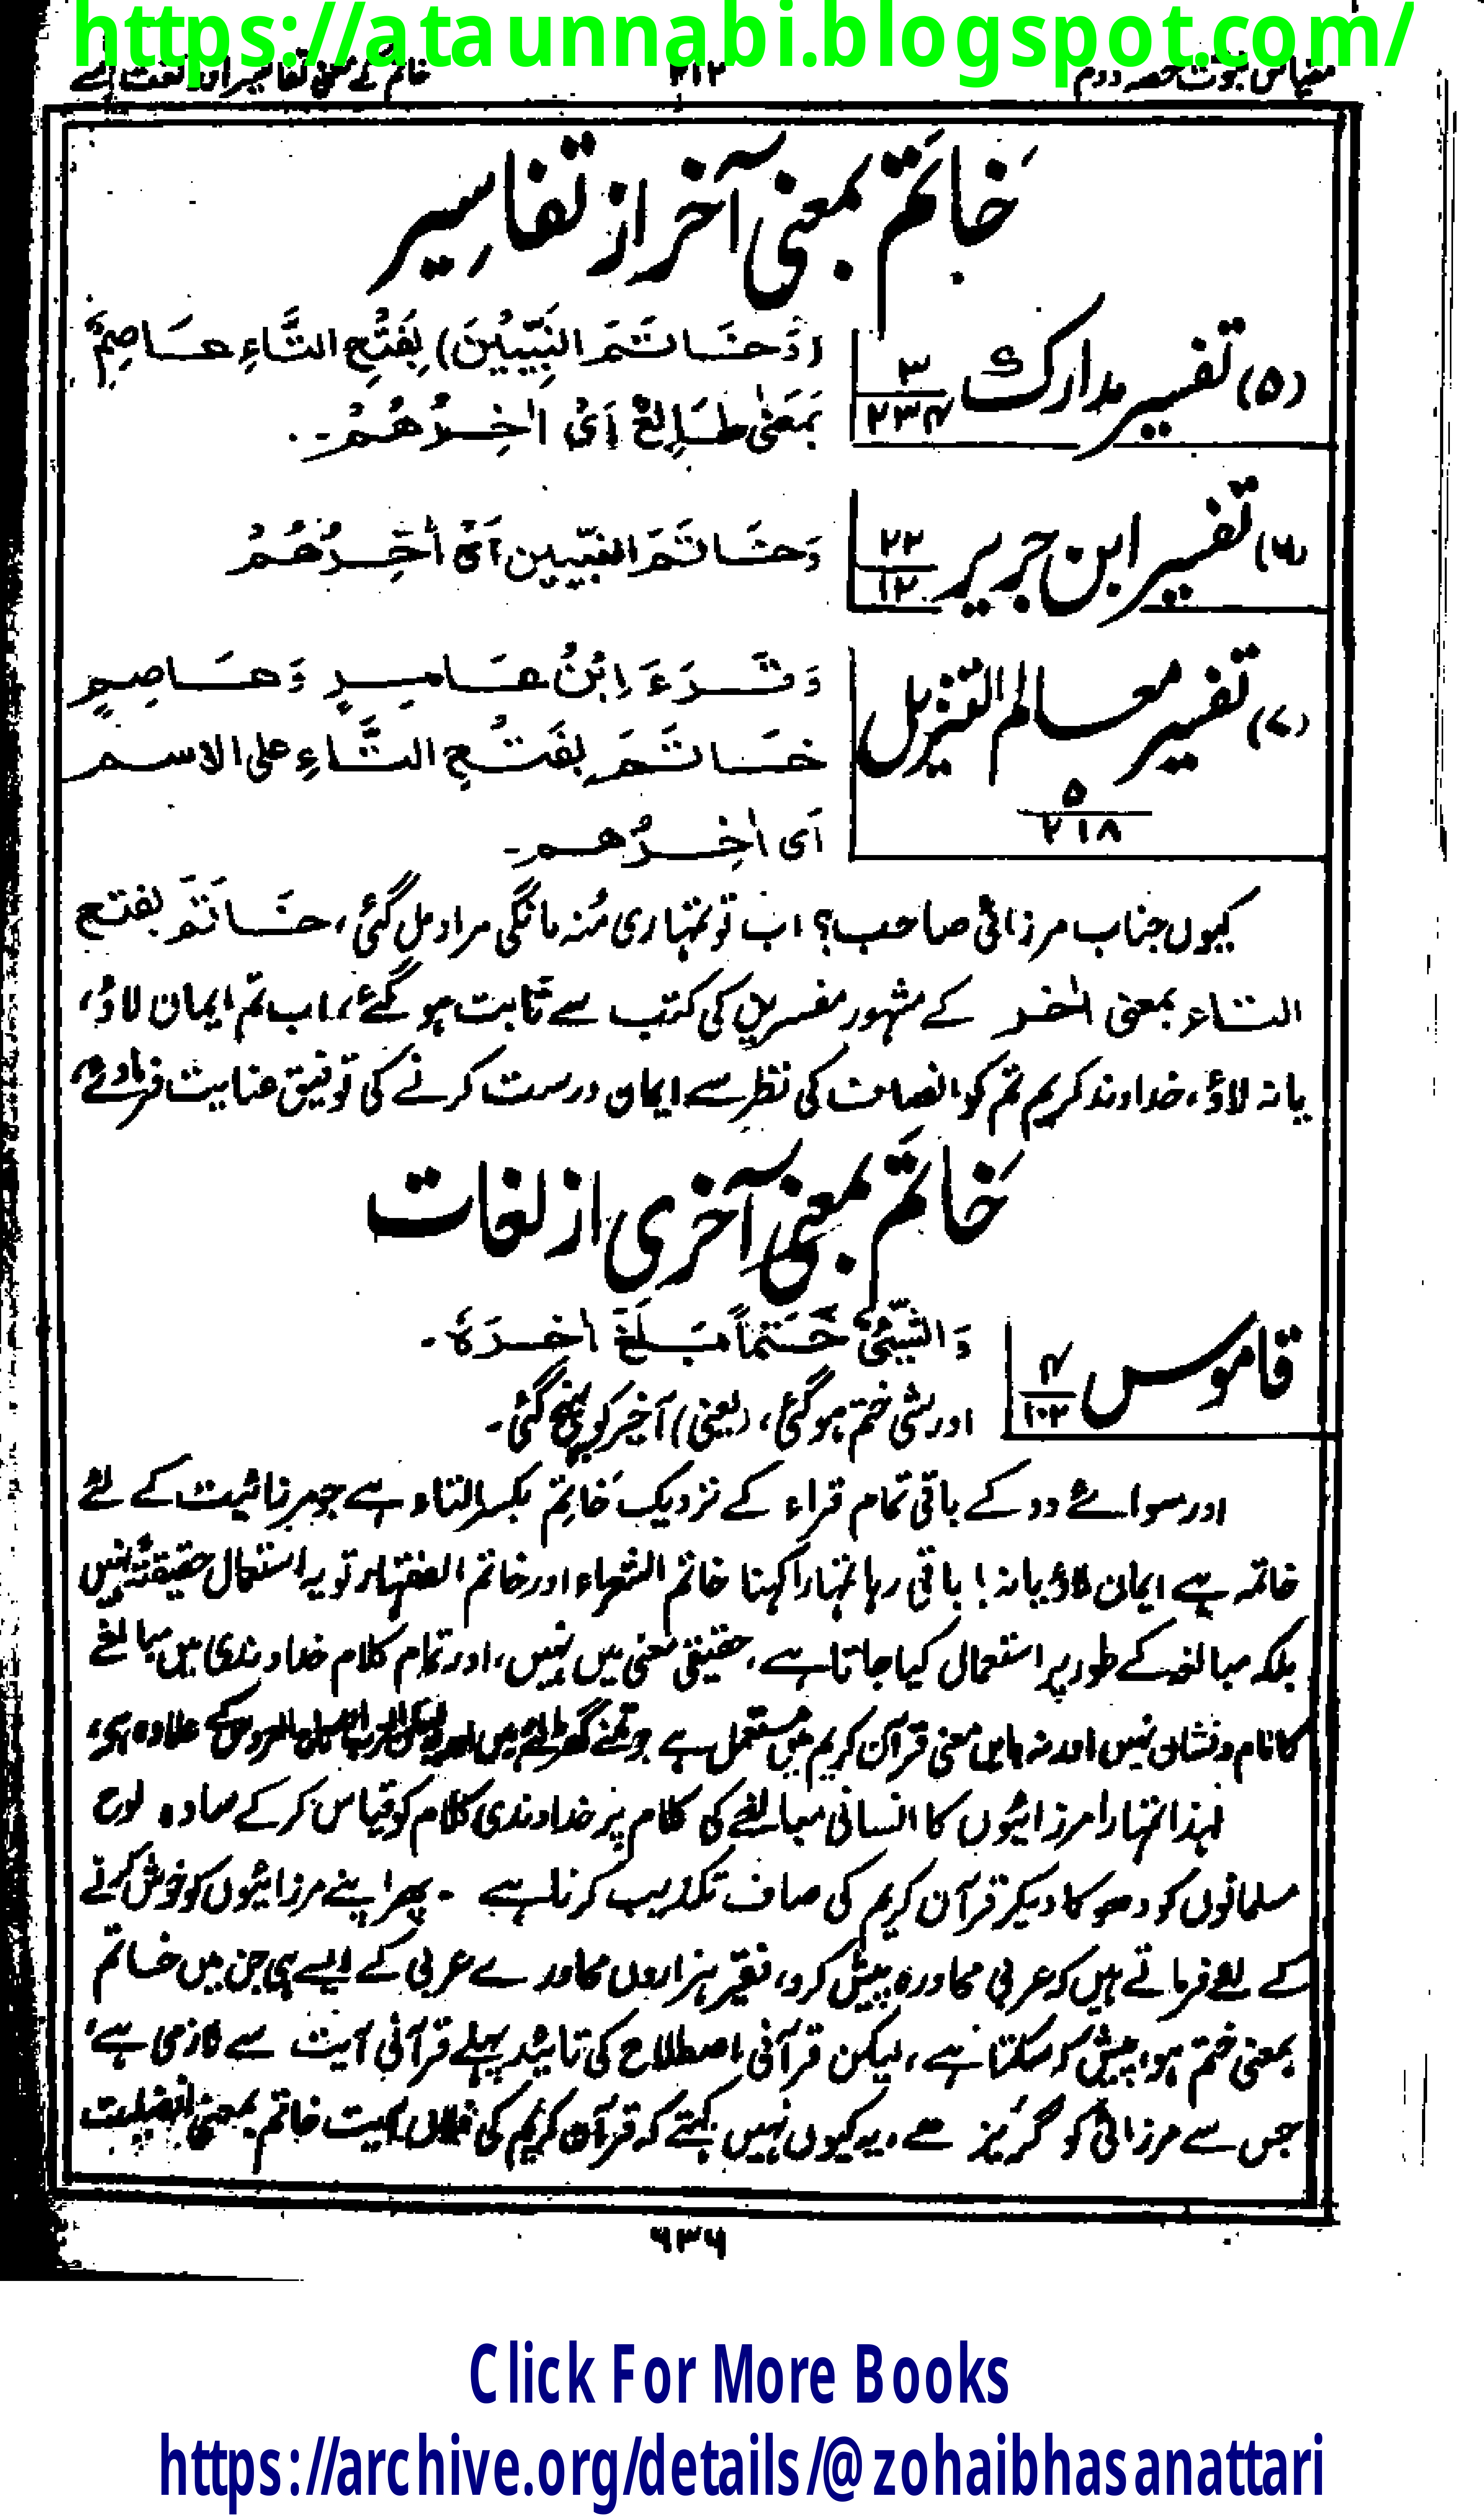 https://ataunnabi.blogspot.com/
مقیاس نبوت حصہ دوم
۲۱۲
خاتم کے معنی تفاسیر اور لغت سے
خَاتَم بمعنی آخر از تفاسِیر
(۵) تفسیر مدارک ۳/۲۳۴
(وَخَاتَمَ النَّبِيّٖنَ) بِفَتْحِ التَّاءِ عَاصِمٌ
بِمَعْنٰی طَابَعٌ اَیْ اٰخِرُهُمْ۔
(۶) تفسیر ابن جریر ۲۲/۱۲
وَخَاتَمَ النَّبِیِّین اَیْ اٰخِرُهُمْ
(۷) تفسیر معالم التنزیل ۵/۲۱۸
وَقَرَءَ ابْنُ عَامِرٍ وَعَاصِمٍ
خَاتَمَ بِفَتْحِ التَّاءِ علی الاسم
اَی اٰخِرُهم۔
کیوں جناب مرزائی صاحب؟ اب تو تمہاری مُنہ مانگی مراد مل گئی، خَاتَمَ بفتح
التاء بمعنی اٰخر کے مشہور مفسرین کی کتب سے ثابت ہو گئے، اب تم ایمان لاؤ،
یا نہ لاؤ، خداوند کریم تم کو انصاف کی نظر سے ایمان درست کرنے کی توفیق عنایت فرماوے،
خَاتَم بمعنی آخری از لغات
قاموس ۴/۱۰۲
وَالشَّیْئَ خَتْمًا بَلَغَ اٰخِرَهٗ۔
اور شی ختم ہو گئی، (یعنی) آخیر کو پہنچ گئی۔
اور سوائے دو کے باقی تمام قراء کے نزدیک خَاتِم بکسر التاء ہے جو مرزائیت کے لئے
خاتمہ ہے ایمان لاؤ یا نہ! باقی رہا تمہارا کہنا خاتم الشعراء اور خاتم الفقہاء تو یہ استعمال حقیقۃً نہیں
بلکہ مبالغہ کے طور پر استعمال کیا جاتا ہے، حقیقی معنی میں نہیں، اور تمام کلام خداوندی میں مبالغے
کا نام و نشان نہیں اور نہ بایں معنی قرآن کریم میں مستعمل ہے جو تم نے گھڑے ہیں کے علاوہ ہو،
لہذا تمہارا مرزائیوں کا انسانی مبالغے کی کلام پر خداوندی کلام کو قیاس کر کے سادہ لوح
مسلمانوں کو دھوکا دیکر قرآن کریم کی صاف تکذیب کرنا ہے ۔ پھر اپنے مرزائیوں کو خوش کرنے
کے لئے فرماتے ہیں کہ عربی محاورہ پیش کرو، فقیر ہزاروں محاورے عربی کے ایسے ہی جن میں خاتم
بمعنی ختم ہو، پیش کر سکتا ہے، لیکن قرآنی اصطلاح کی تائید پہلے قرآنی آیت سے لازمی ہے،
جس سے مرزائی کو گریز ہے، یہ کیوں نہیں کہتے کہ قرآن کریم کی فلاں آیت خاتم بمعنی افضلیت
۶۳۶
Click For More Books
https://archive.org/details/@zohaibhasanattari